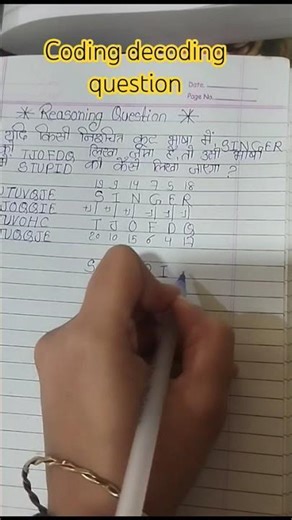 Coding decoding
question
Date
Page No.
* Reasoning Question *
यदि किसी निश्चित कूट भाषा में, SINGER
TJOFDQ लिखा जाता है, तो उसी भाषा
STUPID को कैसे लिखा जाएगा ?
19 9 14 7 5 18
TUVQJE S I N G E R
JOQQIE +1 +1 +1 -1 -1 -1
TUVOHC T J O F D Q
TVQQJE 20 10 15 6 4 17
S I